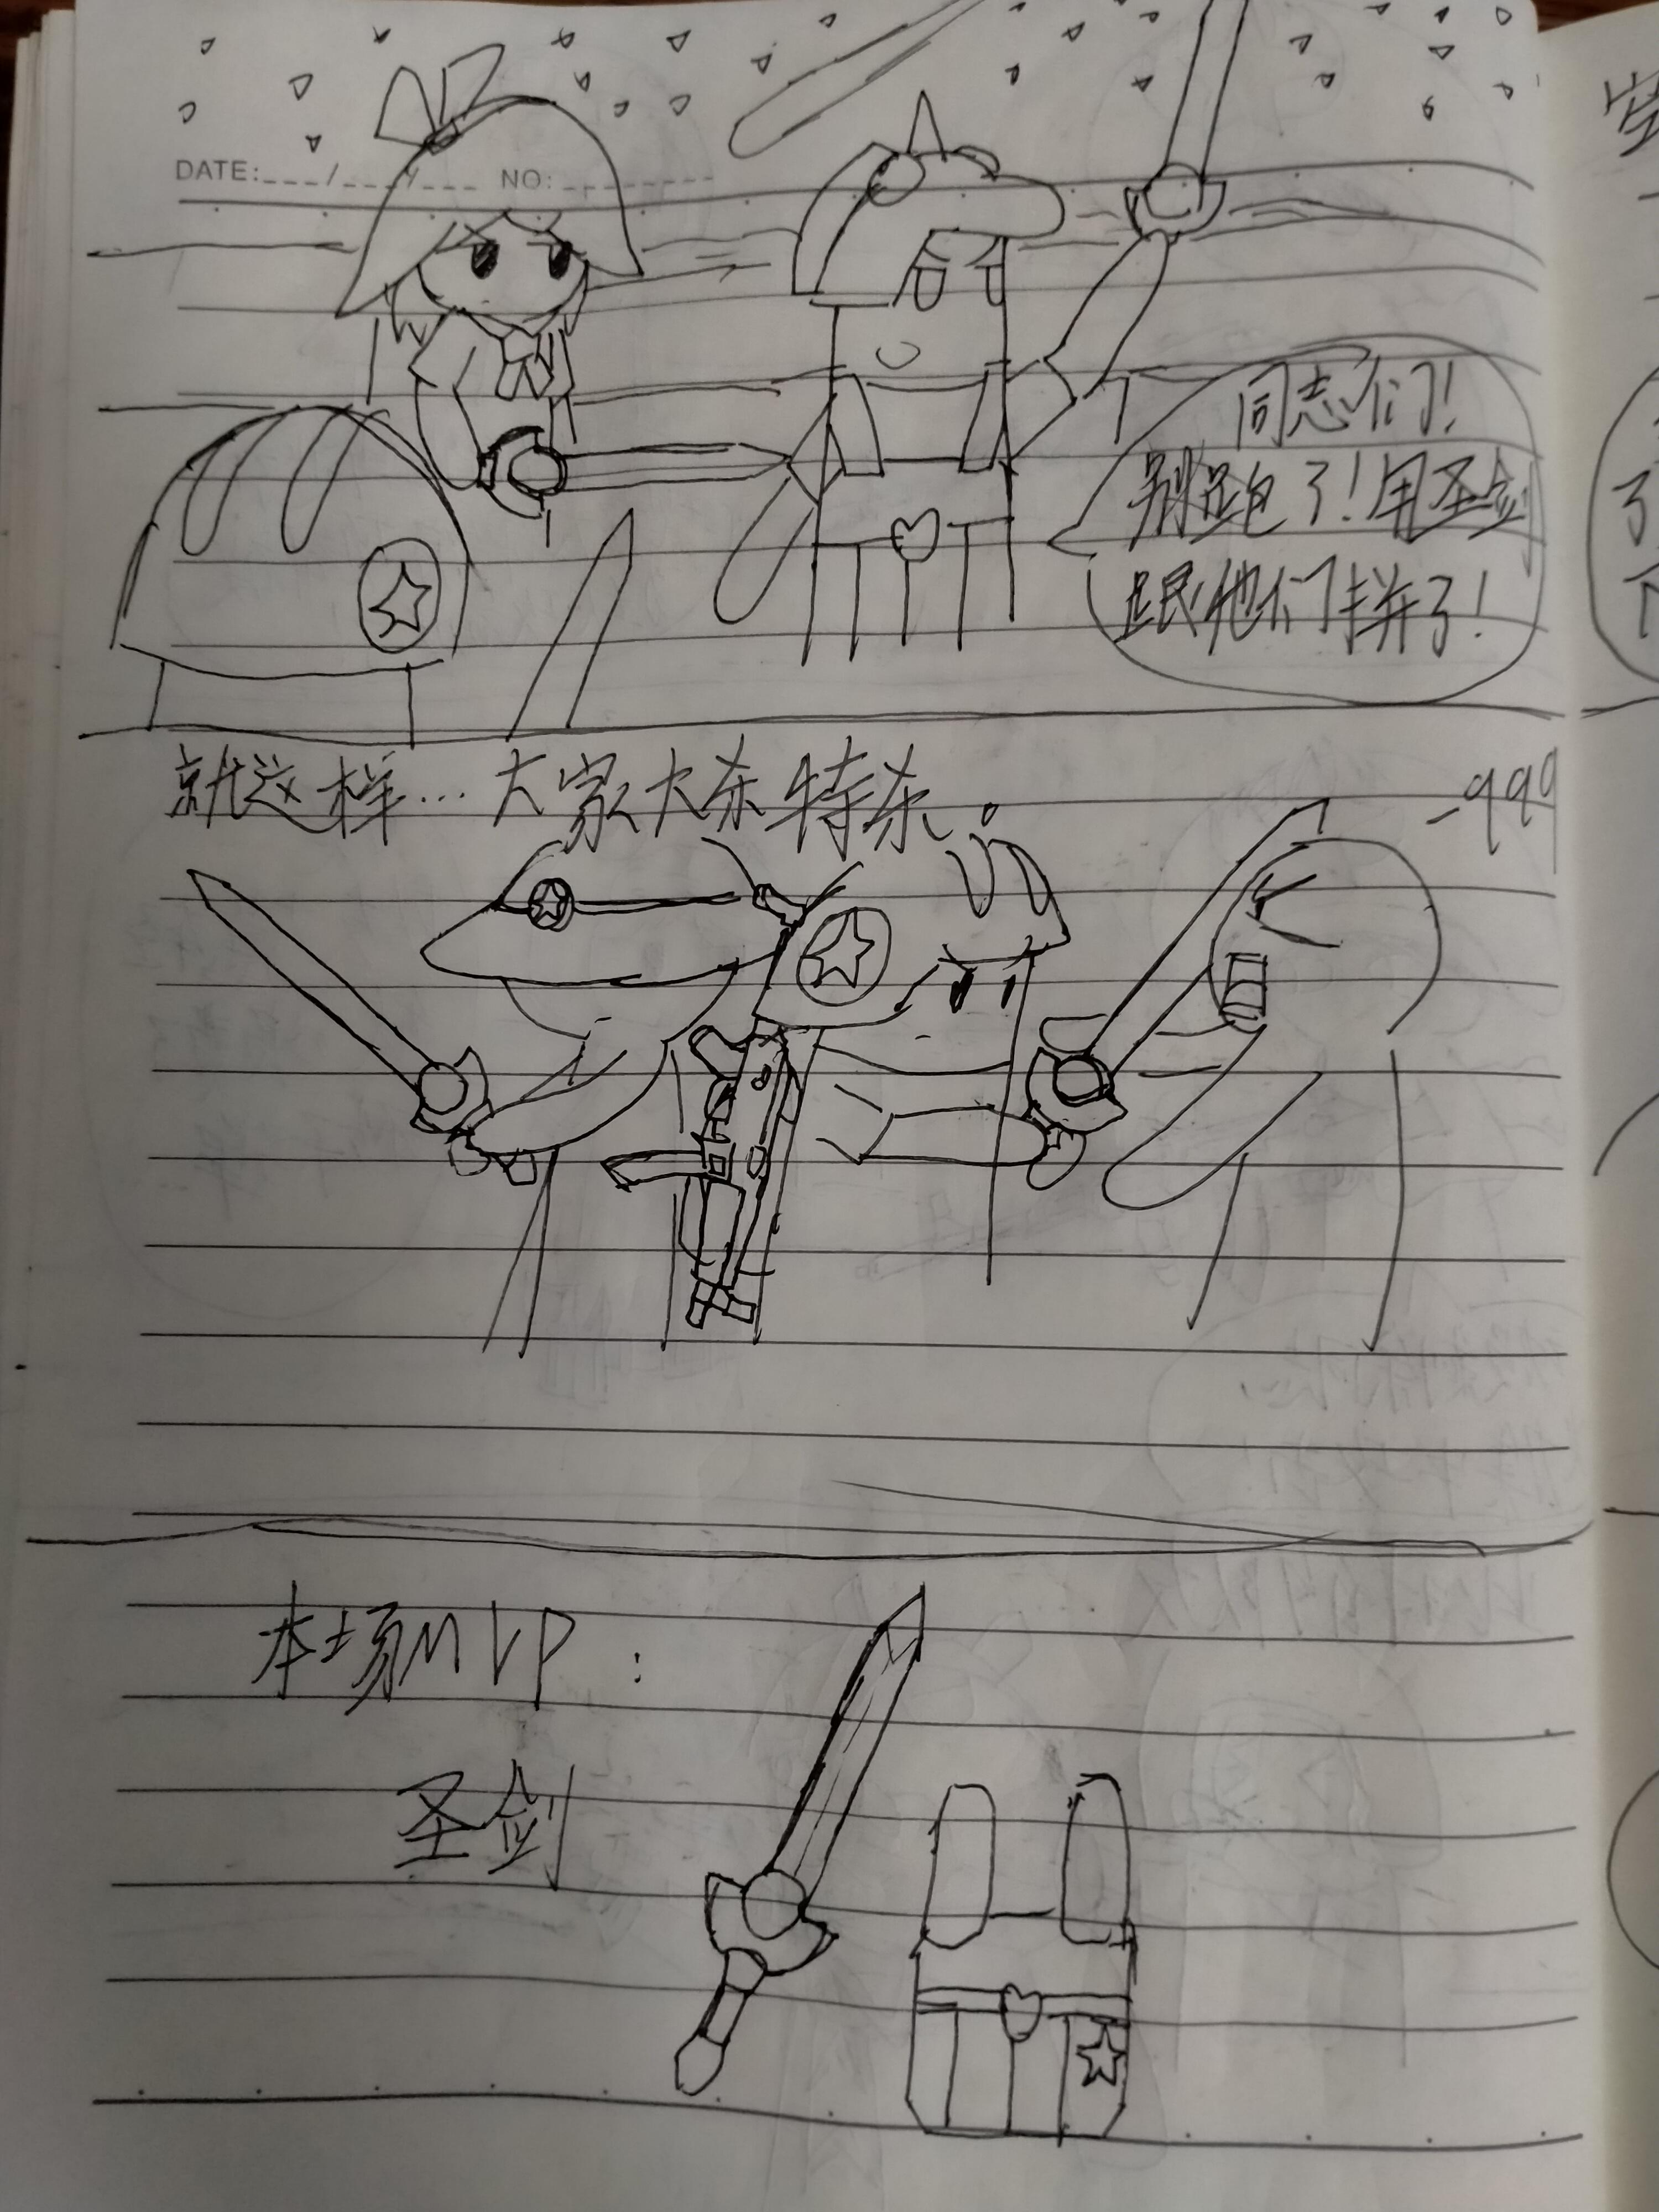 DATE:___/___/___ NO:________
同志们!
别跑了!用圣剑
跟他们拼了!
就这样...大家大杀特杀。
-999
本场MVP:
圣剑